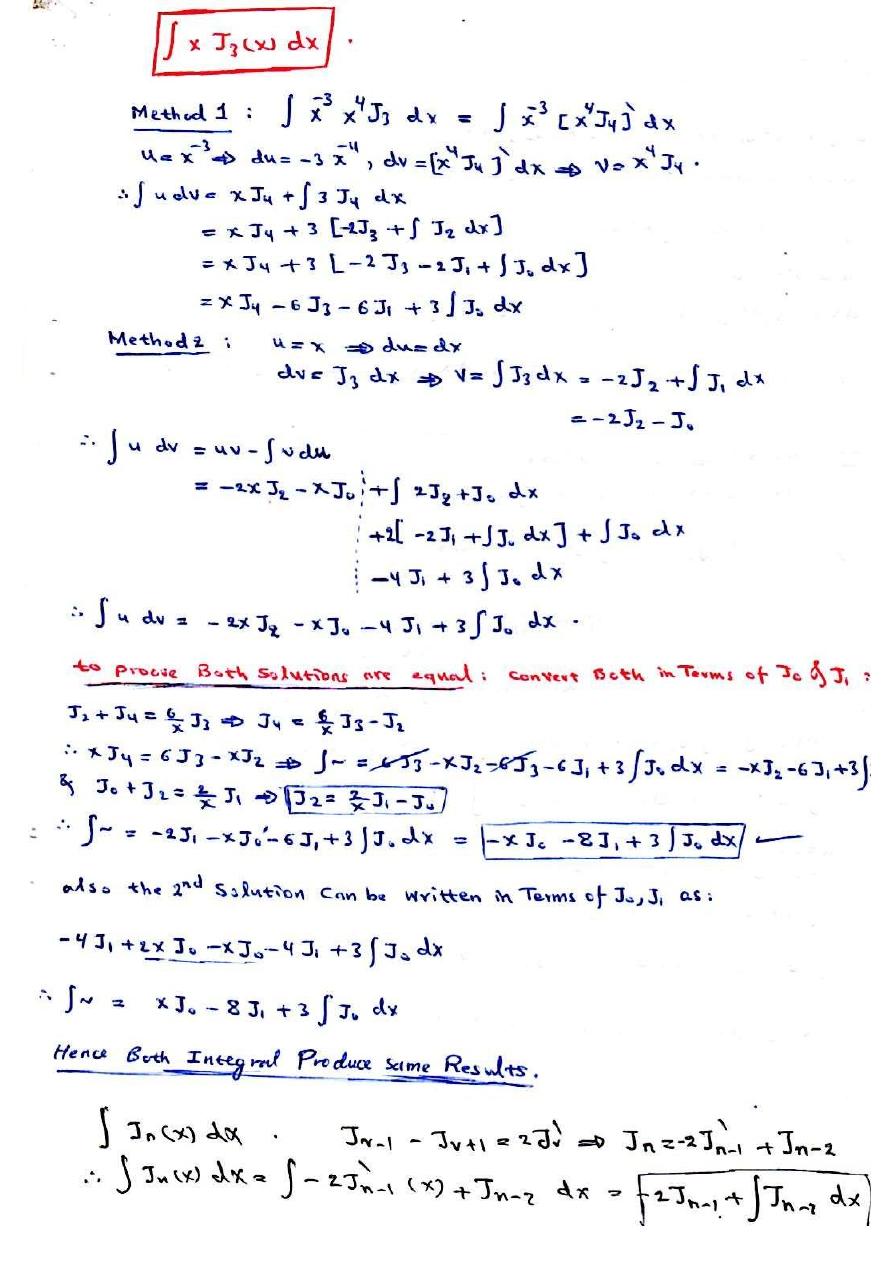 ∫ x J₃(x) dx .
Method 1 : ∫ x⁻³ x⁴J₃ dx = ∫ x⁻³ [x⁴J₄]` dx
u = x⁻³ ⇒ du = -3 x⁻⁴ , dv = [x⁴J₄]` dx ⇒ v = x⁴J₄ .
∴ ∫ u dv = x J₄ + ∫ 3 J₄ dx
= x J₄ + 3 [-2J₃ + ∫ J₂ dx]
= x J₄ + 3 [-2 J₃ - 2 J₁ + ∫ J₀ dx]
= x J₄ - 6 J₃ - 6 J₁ + 3 ∫ J₀ dx
Method 2 : u = x ⇒ du = dx
dv = J₃ dx ⇒ v = ∫ J₃ dx = -2J₂ + ∫ J₁ dx
= -2J₂ - J₀
∴ ∫ u dv = uv - ∫ v du
= -2x J₂ - x J₀ + ∫ 2J₂ + J₀ dx
+2[ -2J₁ + ∫ J₀ dx ] + ∫ J₀ dx
-4 J₁ + 3 ∫ J₀ dx
∴ ∫ u dv = - 2x J₂ - x J₀ - 4 J₁ + 3 ∫ J₀ dx .
to proove Both Solutions are equal : convert Both in Terms of J₀ & J₁ :
J₂ + J₄ = 6/x J₃ ⇒ J₄ = 6/x J₃ - J₂
∴ x J₄ = 6 J₃ - x J₂ ⇒ ∫~ = 6J₃ - x J₂ - 6J₃ - 6 J₁ + 3 ∫ J₀ dx = -x J₂ - 6 J₁ + 3∫
& J₀ + J₂ = 2/x J₁ ⇒ J₂ = 2/x J₁ - J₀
∴ ∫~ = -2J₁ - x J₀ - 6 J₁ + 3 ∫ J₀ dx = -x J₀ - 8 J₁ + 3 ∫ J₀ dx
also the 2nd Solution Can be written in Terms of J₀, J₁ as :
-4 J₁ + 2x J₀ - x J₀ - 4 J₁ + 3 ∫ J₀ dx
∴ ∫~ = x J₀ - 8 J₁ + 3 ∫ J₀ dx
Hence Both Integral Produce same Results.
∫ Jₙ(x) dx . Jᵥ₋₁ - Jᵥ₊₁ = 2Jᵥ` ⇒ Jₙ = -2J`ₙ₋₁ + Jₙ₋₂
∴ ∫ Jₙ(x) dx = ∫ -2J`ₙ₋₁(x) + Jₙ₋₂ dx = -2Jₙ₋₁ + ∫ Jₙ₋₂ dx